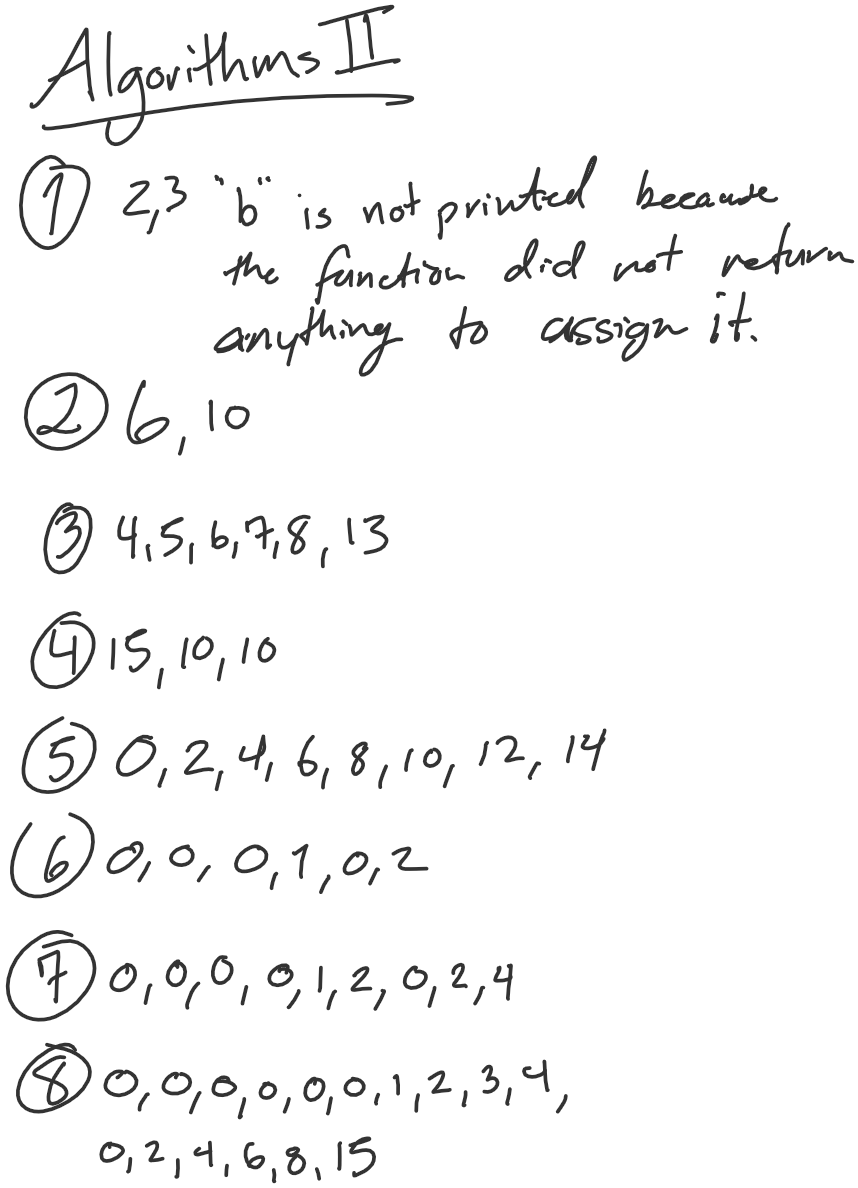 Algorithms II
① 2,3 "b" is not printed because
the function did not return
anything to assign it.
② 6, 10
③ 4,5,6,7,8,13
④ 15,10,10
⑤ 0,2,4,6,8,10,12,14
⑥ 0,0,0,1,0,2
⑦ 0,0,0,0,1,2,0,2,4
⑧ 0,0,0,0,0,0,1,2,3,4,
0,2,4,6,8,15